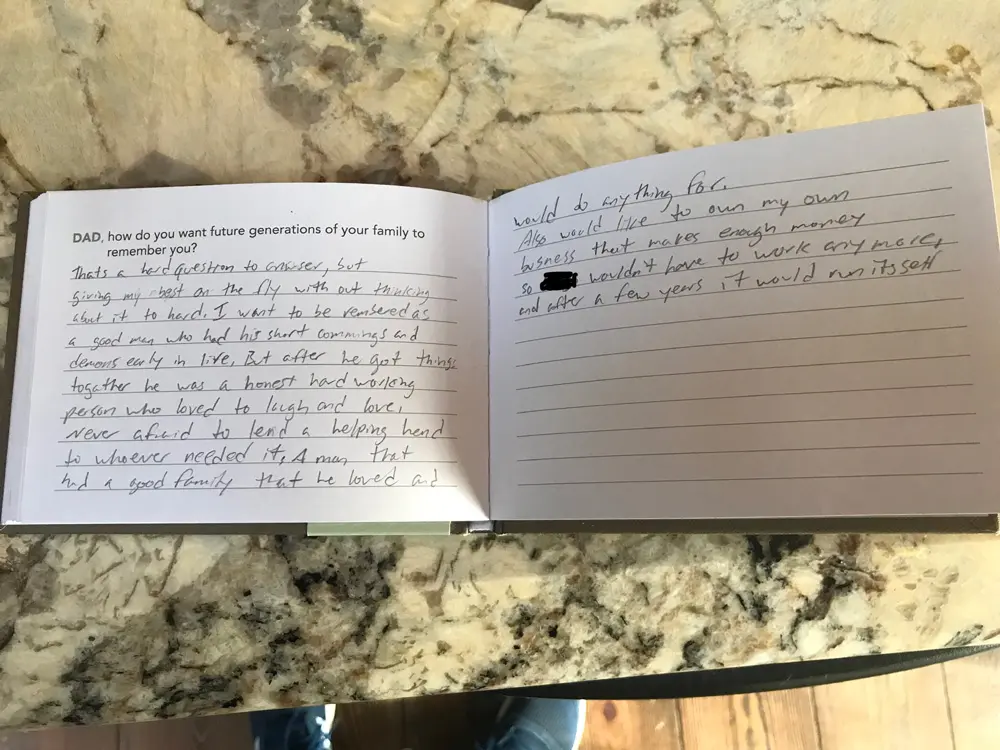 DAD, how do you want future generations of your family to
remember you?
Thats a hard question to answer, but
giving my best on the fly with out thinking
about it to hard. I want to be rembered as
a good man who had his short commings and
demons early in live. But after he got things
together he was a honest hard working
person who loved to laugh and love.
Never afraid to lend a helping hend
to whoever needed it. A man that
had a good family that he loved and
would do anything for.
Also would like to own my own
busness that makes enough money
so wouldn't have to work any more,
and after a few years it would run itsself